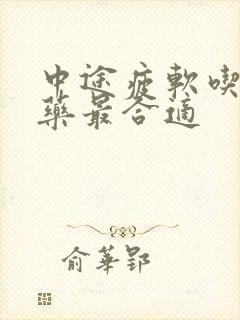 中途疲軟喫
藥最合適
俞華郢